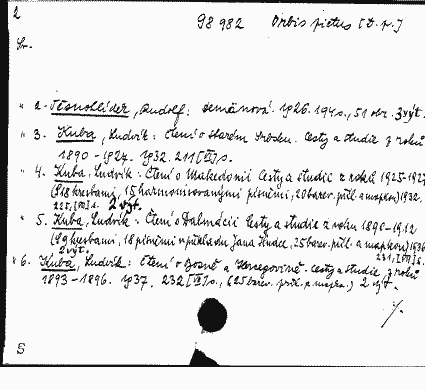 2
98 982 Orbis pictus [t. r.]
Sv.
" 2. Těsnohlídek, Rudolf: Demänová. 1926. 194 s., 51 obr. 3 výt.
" 3. Kuba, Ludvík: Čtení o starém Srbsku. Cesty a studie z roků
1890-1927. 1932. 211 [VI] s.
" 4. Kuba, Ludvík: Čtení o Makedonii Cesty a studie z roků 1925-1927
(S 18 kresbami, 15 harmonisovanými písněmi, 20 barev. příl. a mapkou) 1932.
2 výt.
" 5. Kuba, Ludvík: Čtení o Dalmácii Cesty a studie z roku 1890-1912
(S 9 kresbami, 18 písněmi v překladu Jana Hudce, 25 barev. příl. a mapkou) 1936
2 výt.
" 6. Kuba, Ludvík: Čtení o Bosně a Hercegovině. Cesty a studie z roků
1893-1896. 1937. 232 [VI] s., 6 25 barev. příl. a mapa.) 2 výt.
./.
S